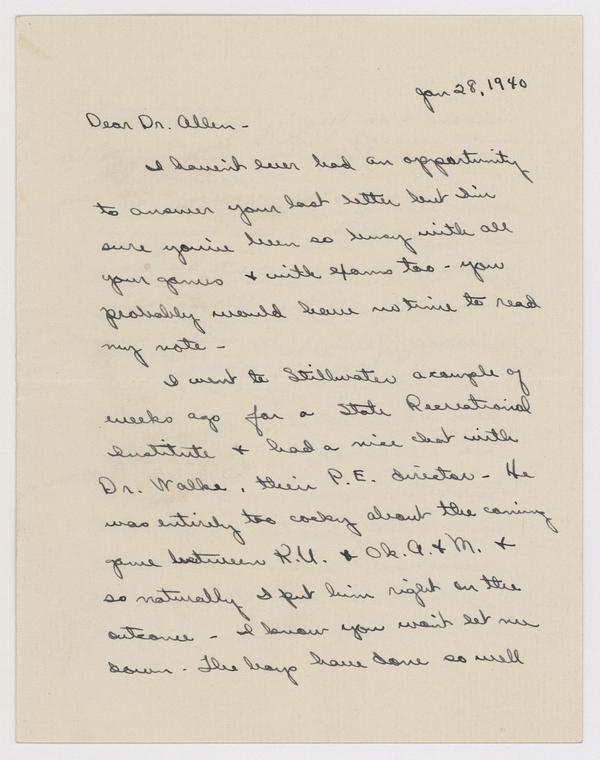 Jan 28, 1940
Dear Dr. Allen -
I haven't ever had an opportunity
to answer your last letter but I'm
sure you've been so busy with all
your games & with exams too - you
probably would have no time to read
my note -
I went to Stillwater a couple of
weeks ago for a State Recreational
Institute & had a nice chat with
Dr. Walke, their P.E. director - He
was entirely too cocky about the coming
game between K.U. & Ok. A. & M. &
so naturally I put him right on the
outcome - I know you won't let me
down - The boys have done so well